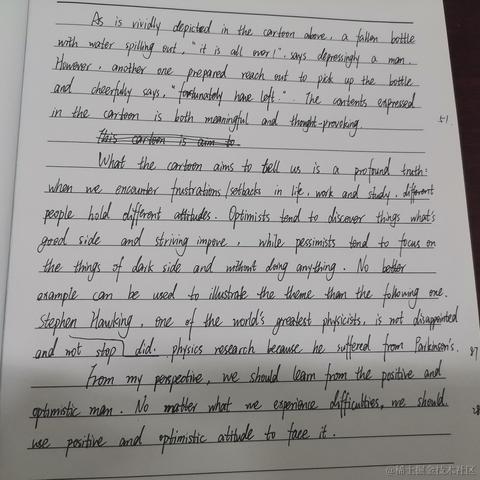 As is vividly depicted in the cartoon above, a fallen bottle
with water spilling out, "it is all over!", says depressingly a man.
However, another one prepared reach out to pick up the bottle
and cheerfully says, "fortunately have left". The contents expressed
in the cartoon is both meaningful and thought-provoking.
51
This cartoon is aim to
What the cartoon aims to tell us is a profound truth:
when we encounter frustrations/setbacks in life, work and study, different
people hold different attitudes. Optimists tend to discover things what's
good side and striving impove, while pessimists tend to focus on
the things of dark side and without doing anything. No better
example can be used to illustrate the theme than the following one.
Stephen Hawking, one of the world's greatest physicists, is not disappointed
and not stop did. physics research because he suffered from Parkinson's.
87
From my perspective, we should learn from the positive and
optimistic man. No matter what we experience difficulties, we should
use positive and optimistic attitude to face it.
@稀土掘金技术社区